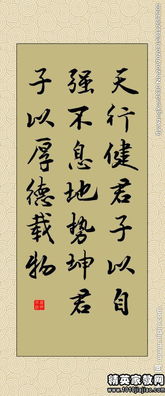 天行健君子以自
强不息地势坤君
子以厚德载物
精英家教网
www.1010jiajiao.com